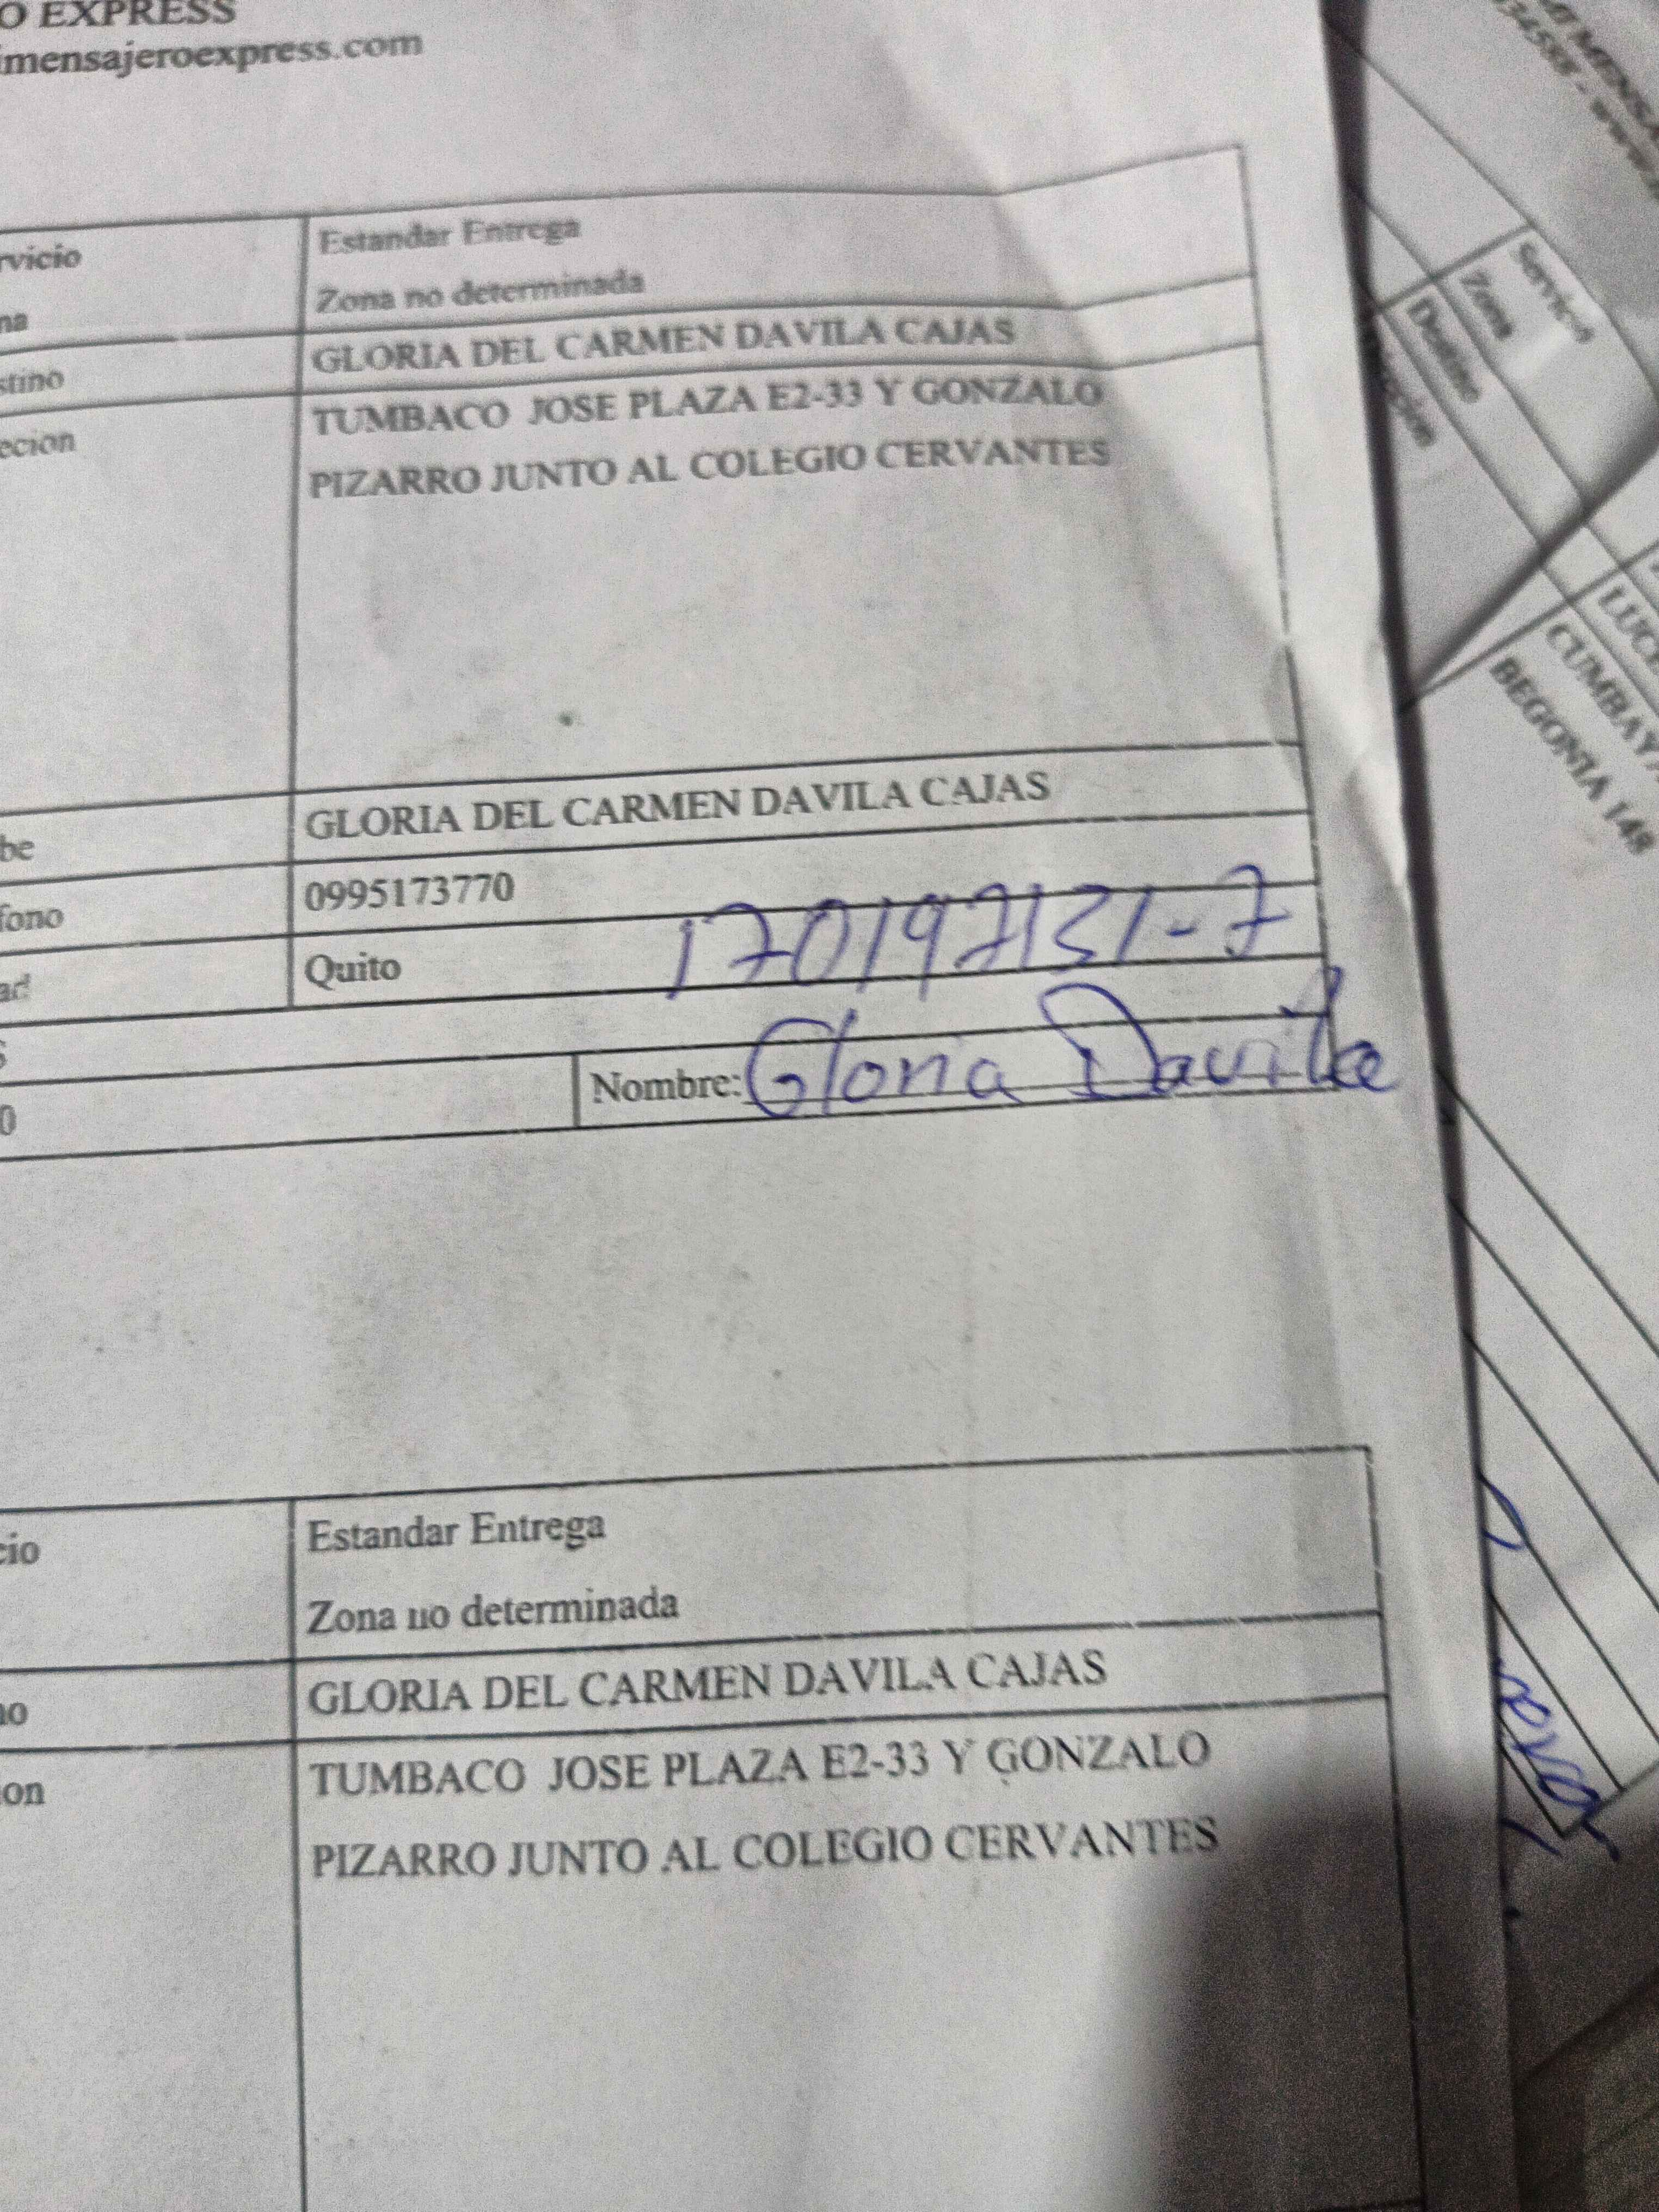 O EXPRESS
imensajeroexpress.com
rvicio Estandar Entrega
na Zona no determinada
stino GLORIA DEL CARMEN DAVILA CAJAS
ecion TUMBACO JOSE PLAZA E2-33 Y GONZALO
PIZARRO JUNTO AL COLEGIO CERVANTES
be GLORIA DEL CARMEN DAVILA CAJAS
fono 0995173770
ad Quito
170197131-7
S
0 Nombre: Gloria Davila
cio Estandar Entrega
Zona no determinada
no GLORIA DEL CARMEN DAVILA CAJAS
on TUMBACO JOSE PLAZA E2-33 Y GONZALO
PIZARRO JUNTO AL COLEGIO CERVANTES
MI MENSA
Servicio
Zona
Destino
LUCE
CUMBAYA
BEGONIA 148